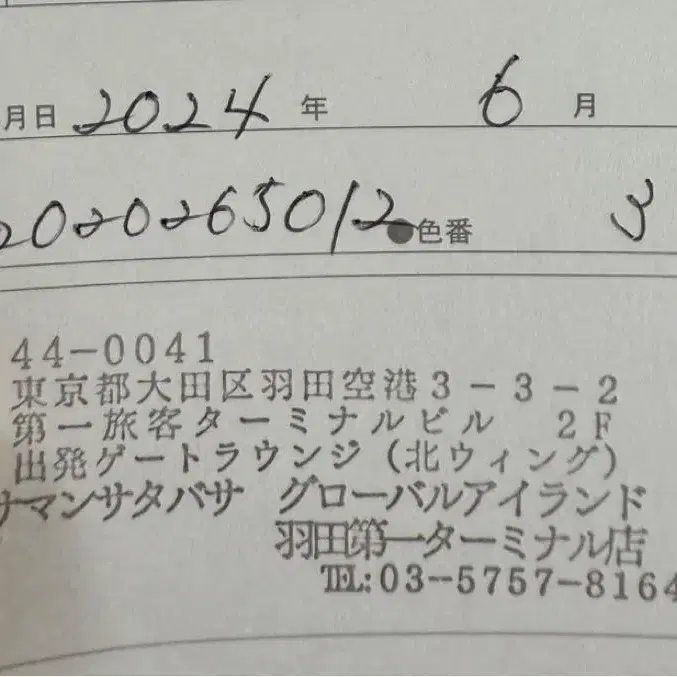 月日 2024 年 6 月
2020265012 色番 3
44-0041
東京都大田区羽田空港3-3-2
第一旅客ターミナルビル 2F
出発ゲートラウンジ(北ウィング)
サマンサタバサ グローバルアイランド
羽田第一ターミナル店
TEL:03-5757-8164